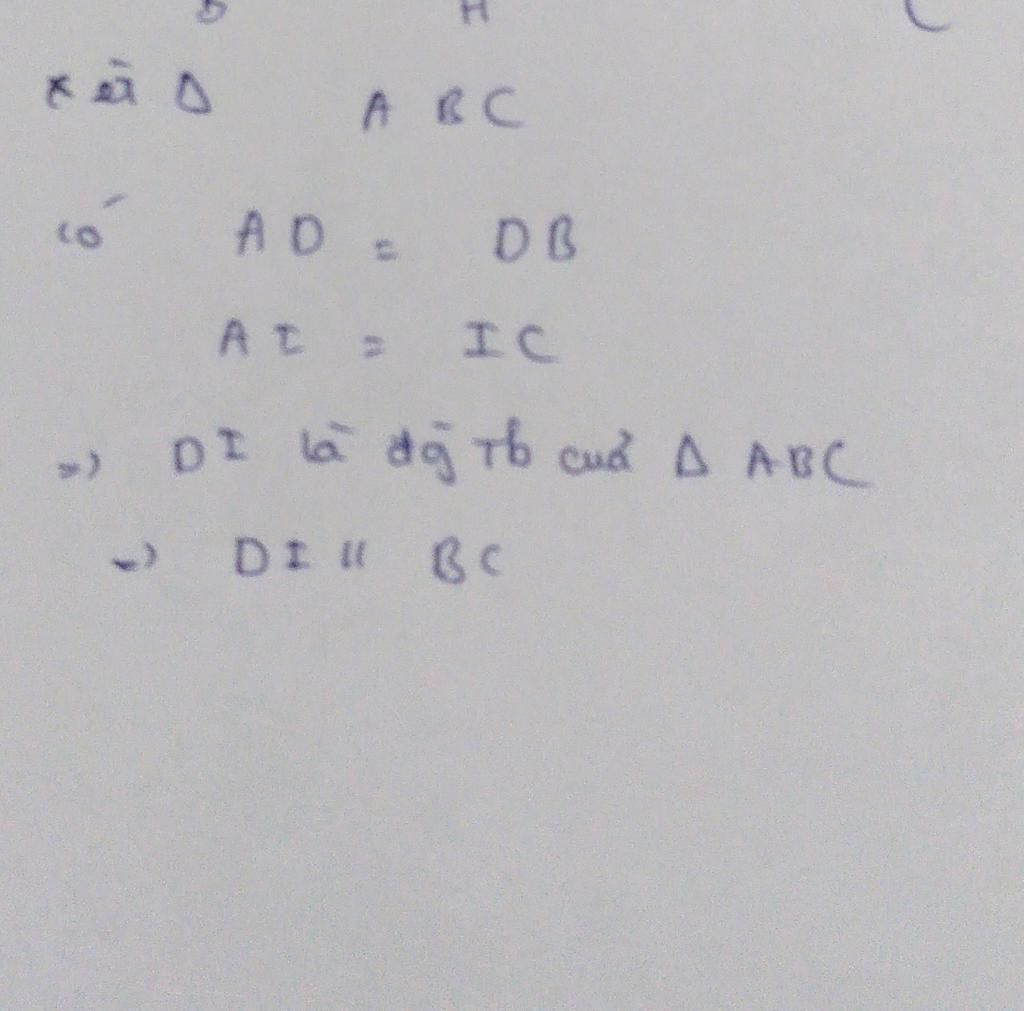 B H C
xét Δ ABC
có AD = DB
AI = IC
=> DI là đg Tb cuả Δ ABC
=> DI // BC